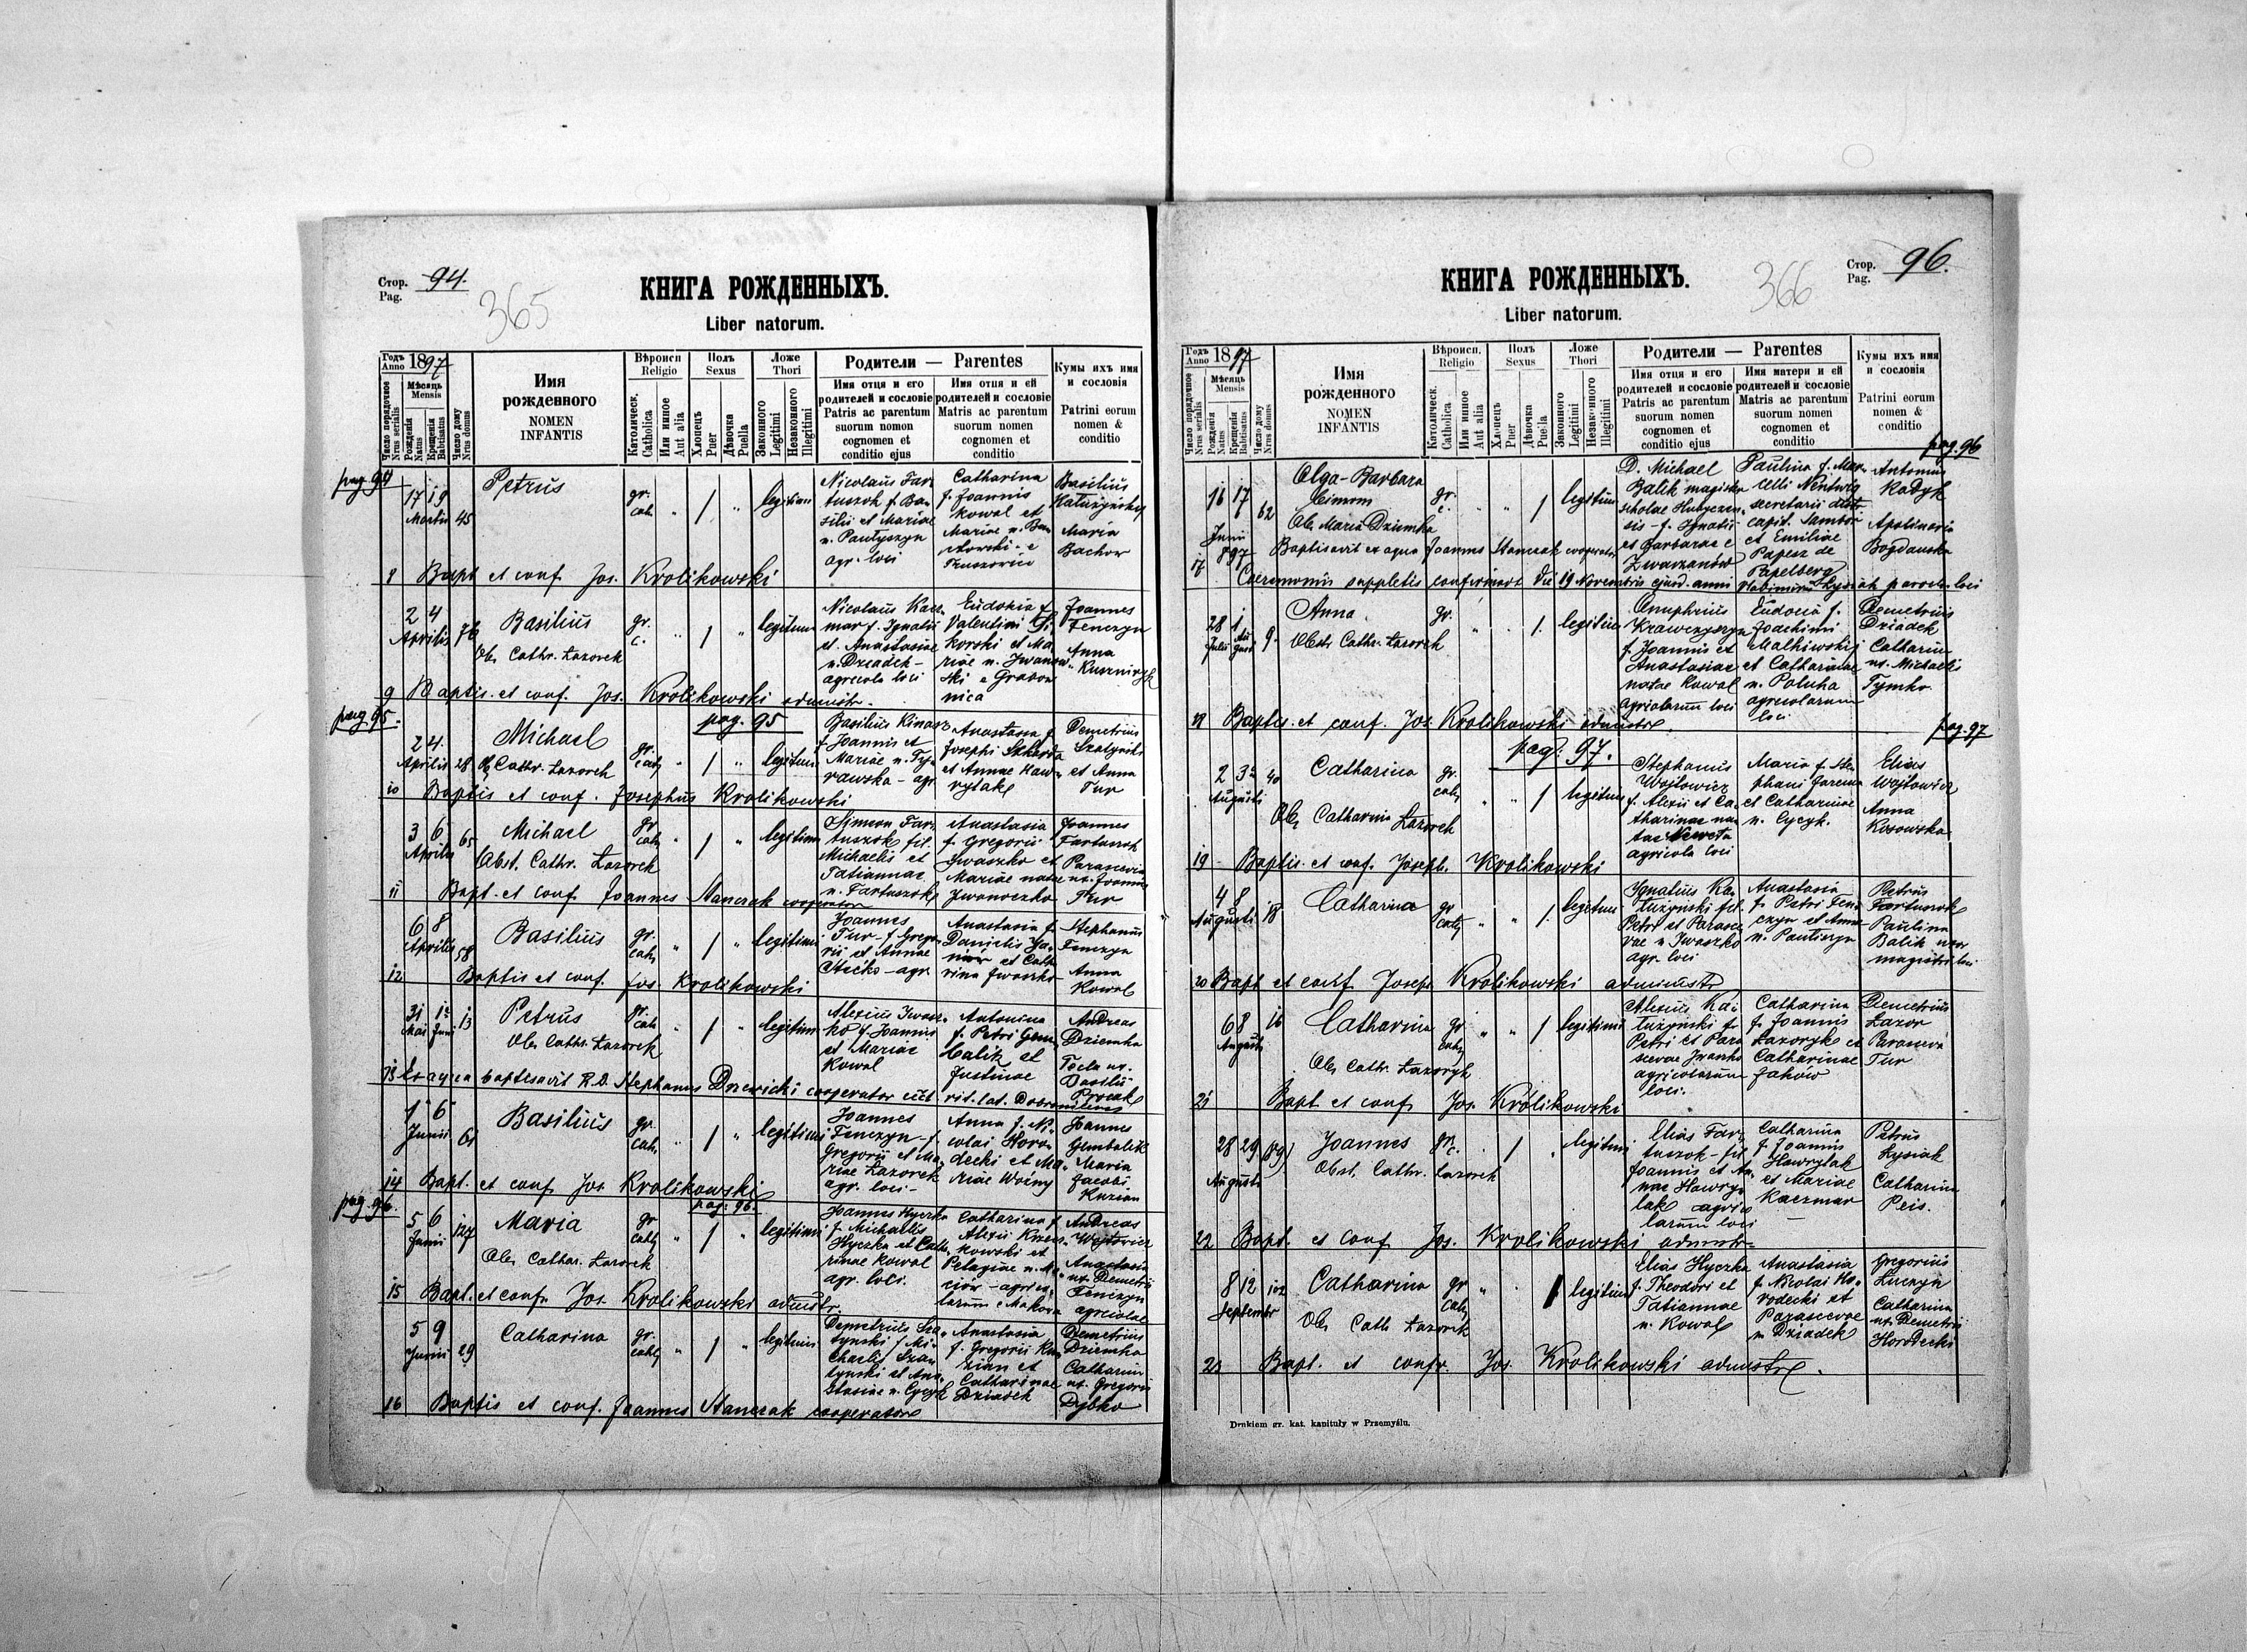 Стор. 94.
Pag.
365
КНИГА РОЖДЕННЫХЪ.
Liber natorum.
Годъ 1897
Anno
Мѣсяць
Mensis
Число порядочное
Nrus serialis
Рожденія
Natus
Крещенія
Babtisatus
Число дому
Nrus domus
Имя
рожденного
NOMEN
INFANTIS
Вѣроисп
Religio
Католическ.
Catholica
Или инное
Aut alia
Полъ
Sexus
Хлопецъ
Puer
Дѣвочка
Puella
Ложе
Thori
Законного
Legitimi
Незаконного
Illegitimi
Родители — Parentes
Имя отця и его
родителей и сословіе
Patris ac parentum
suorum nomon
cognomen et
conditio ejus
Имя отця и ей
родителей и сословіе
Matris ac parentum
suorum nomen
cognomen et
conditio
Кумы ихъ имя
и сословія
Patrini eorum
nomen &
conditio
pag. 94
17 19 Martii 45
Petrus
gr. cath. " / " legitimi
Nicolaus Far
tuszok f. Ba
silii et Mariae
n. Pautyszyn
agr. loci
Catharina
f. Joannis
Kowal et
Mariae n.
Basilius
Maria
Bachor
8 Bapt et conf Jos. Krolikowski
2 4 Aprilis 76
Basilius
Ob. Cathr. Lazorek
gr. c. " / " legitimi
Nicolaus Kacz
mar f. Ignatii
et Anastasiae
n. Dziadek -
agricola loci
Eudokia f.
Valentini
korski et Ma
riae n. Iwanow
ski e Grabow
nica
Joannes
Fenczyn
Anna
Kuzniczyk
9 Baptis. et conf. Jos. Krolikowski admistr.
pag 95.
pag. 95
2 4. Aprilis 28
Michael
Ob. Cathr. Lazorek
gr. cath " / " legitimi
Basilius Kinasz
f. Joannis et
Mariae n. Ty
rawska - agr
Anastasia f.
Josephi
et Annae Haw
rylak
Demetrius
Szatynski
et Anna
Tur
10 Baptis et conf. Josephus Krolikowski
3 6 Aprilis 65
Michael
Obst. Cathr. Lazorek
gr cath " / " legitimi
Simeon Far
tuszok fil.
Michaelis et
Tatiannae
n. Fartuszok
Anastasia
f. Gregorii
Iwaszko et
Mariae natae
Iwaneczko
Joannes
Fartuszok
Parascevia
ux. Joannis
Tur
11 Bapt. et conf Joannes Stanczak cooperator
6 8 Aprilis 58
Basilius
gr. cath " / " legitimi
Joannes
Tur f. Grego
rii et Annae
Stecko - agr
Anastasia f.
Danielis
et Cath
rina Iwaszko
Stephanus
Fenczyn
Anna
Kowal
12 Baptis et conf. Jos. Krolikowski
31 Mai 1 Juni 13
Petrus
Ob. Cathr. Lazorek
gr. cath " / " legitimi
Alexius Iwasz
ko f. Joannis
et Mariae
Kowal
Antonina
f. Petri Gem
balik et
Justinae
Andreas
Dziemba
Tecla ux.
Basilii
13 Ex aqua baptisavit R. D. Stephanus Drewicki cooperator rit. lat. Dobromiliensis
1 6 Junii 61
Basilius
gr. cath. " / " legitimi
Joannes
Fenczyn - f.
Gregorii et Ma
riae Lazorek
agr. loci -
Anna f. Ni
colai Horo
decki et Ma
riae Woiny
Joannes
Gembalik
Maria
Jacobi
Kuzian
14 Bapt. et conf Jos Krolikowski
pag. 96.
pag. 96.
5 6 Junii 127
Maria
Ob. Cathar. Lazorek
gr cath " / " legitimi
Joannes Hyczka
f. Michaelis
Hyczka et Cath
rinae Kowal
agr. loci.
Catharina f.
Alexii
kowski et
Pelagiae n. Ma
ciór - agrico
larum e Makova
Andreas
Wojtowicz
Anastasia
ux. Demetrii
Fenczyn
agricolae
15 Bapt. et conf Jos. Krolikowski admistr.
5 9 Junii 29
Catharina
gr. cath " / " legitimi
Demetrius Sza
tynski f. Mi
chaelis Sza
tynski et Ana
stasiae n. Cycyk
Anastasia
f. Gregorii Ku
zian et
Catharinae
Dziadek
Demetrius
Dziemba
Catharina
ux. Gregorii
Dybko
16 Baptis et conf. Joannes Stanczak cooperator
366
Стор. 96.
Pag.
КНИГА РОЖДЕННЫХЪ.
Liber natorum.
Годъ 1897
Anno
Мѣсяць
Mensis
Число порядочное
Nrus serialis
Рожденія
Natus
Крещенія
Babtisatus
Число дому
Nrus domus
Имя
рожденного
NOMEN
INFANTIS
Вѣроисп.
Religio
Католическ.
Catholica
Или инное
Aut alia
Полъ
Sexus
Хлопецъ
Puer
Дѣвочка
Puella
Ложе
Thori
Законного
Legitimi
Незаконного
Illegitimi
Родители — Parentes
Имя отця и его
родителей и сословіе
Patris ac parentum
suorum nomen
cognomen et
conditio ejus
Имя матери и ей
родителей и сословіе
Matris ac parentum
suorum nomen
cognomen et
conditio
Кумы ихъ имя
и сословія
Patrini eorum
nomen &
conditio
pag. 96
16 17 Junii 897 62
Olga-Barbara
Ob. Maria Dziemba
gr. c. " " / legitimi
D. Michael
Balik magister
scholae
sis - f. Ignatii
et Barbarae e
Zwarzanów
Paulina f. Mar
celli Nentwig
secretarii distr
capit. Sambor
et Emiliae
Papesz de
Papelberg
Antonius
Kadyk
Apolinaria
Bogdanska
17 Baptisavit ex aqua Joannes Stanczak cooperator
Caeremoniis suppletis confirmavit die 19 Novembris ejusd. anni Vladimirus Lysiak paroch loci
28 Julii 1 August 9.
Anna
Obst. Cathr. Lazorek
gr. " " /. legitimi
Onuphrius
Krawczyszyn
f. Joannis et
Anastasiae
natae Kowal
agricolarum loci
Eudocia f.
Joachimi
Malkiwskij
et Catharinae
n. Poluha
agricolarum
loci
Demetrius
Dziadek
Catharina
ux. Michaelis
Tymko
18 Baptis. et conf. Jos. Krolikowski admistr
pag. 97
pag: 97.
2 3 Augusti 40
Catharina
Ob. Catharina Lazorek
gr. cath " " / legitimi
Stephanus
Wojtowicz
f. Alexii et Ca
tharinae na
tae
agricola loci
Maria f. Ste
phani
et Catharinae
n. Cycyk.
Elias
Wojtowicz
Anna
Kosowska
19 Baptis. et conf. Joseph. Krolikowski
4 8 Augusti 18
Catharina
gr cath " " /. legitimi
Ignatius Ka
luzynski fil.
Petri et Parasce
vae n Iwaszko
agr. loci
Anastasia
f. Petri Fen
czyn et Anna
n. Pautiszyn
Petrus
Fartuszok
Paulina
Balik uxor
magistri loci
20 Bapt et conf Joseph Krolikowski administr
6 8 Augusti 16
Catharina
Ob. Cathr. Lazoryk
gr cath " " / legitimi
Alexius Ka
luzynski f.
Petri et Para
scevae Iwaszko
agricolarum
loci.
Catharina
f. Joannis
Lazoryk et
Catharinae
Jaków
Demetrius
Lazor
Parasceva
Tur
21 Bapt et conf Jos. Królikowski
28 29 Augusti (89)
Joannes
Obst. Cathr. Lazorek
gr. c. " / " legitimi
Elias Far
tuszok - fil
Joannis et An
nae Hawry
lak agrico
larum loci
Catharina
f. Joannis
Hawrylak
et Mariae
Kaczmar
Petrus
Lysiak
Catharina
Peis.
22 Bapt. et conf Jos. Krolikowski admistr
8 12 Septembr 102
Catharina
Ob. Cath Lazorek
gr cath " / legitimi
Elias Hyczka
f. Theodori et
Tatiannae
n. Kowal
Anastasia
f. Nicolai Ho
rodecki et
Parascevae
n Dziadek
Gregorius
Luczyn
Catharina
ux. Demetrii
Horodecki
23 Bapt. et conf. Jos. Krolikowski admistr.
Drukiem gr. kat. kapituły w Przemyślu.